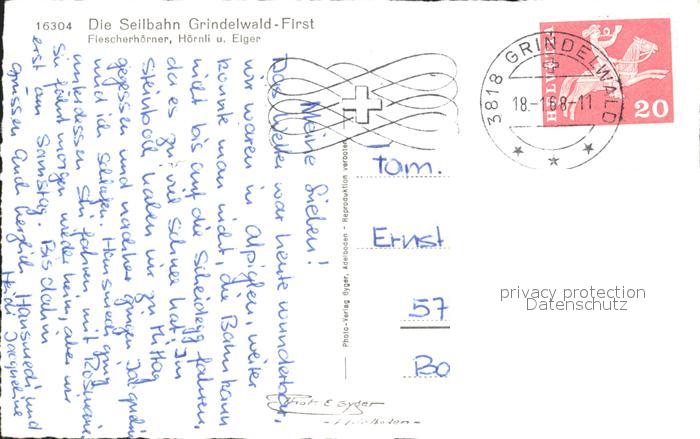 16304 Die Seilbahn Grindelwald-First
Fiescherhörner, Hörnli u. Eiger
3818 GRINDELWALD
18.-1.68-11
HELVETIA
20
Meine Lieben!
Das Wetter war heute wunderbar,
wir waren in Alpiglen, weiter
konnte man nicht, die Bahn kann
nicht bis auf die Scheidegg fahren,
da es zu viel Schnee hat. Im
Steinbock haben wir zu Mittag
gegessen und nachher gingen
und ich schlafen. Hansruedi ging
unterdessen Ski fahren mit
Sie fährt morgen wieder heim, aber wir
erst am Samstag. Bis dahin
grüssen Euch herzlich Hansruedi und
Jacqueline
Photo-Verlag Gyger, Adelboden - Reproduktion verboten
Fam.
Ernst
57
Bo
Phot. E. Gyger
- Adelboden -
privacy protection
Datenschutz